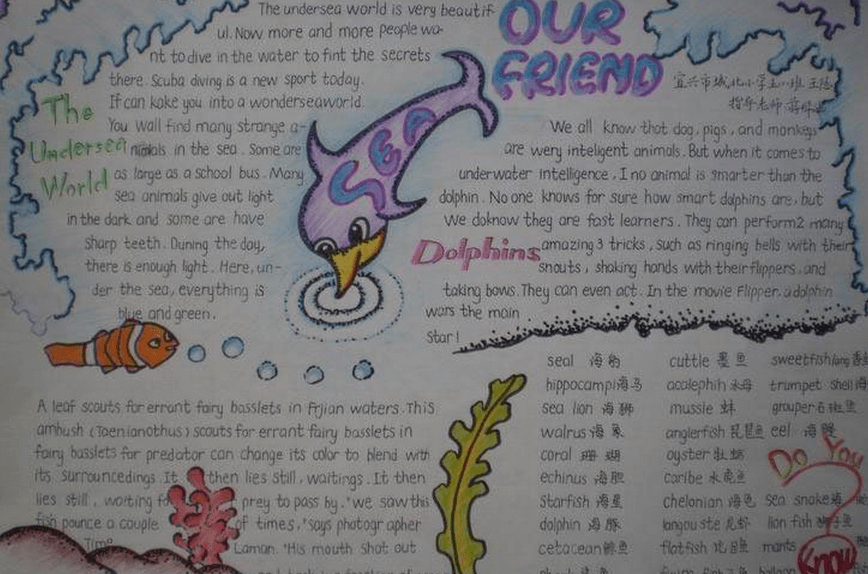 The undersea world is very beautif
ul. Now more and more people wa-
nt to dive in the water to fint the secrets
there. Scuba diving is a new sport today.
If can kake you into a wonderseaworld.
You wall find many strange a-
nimals in the sea. Some are
as large as a school bus. Many
sea animals give out light
in the dark and some are have
sharp teeth. Duning the day,
there is enough light. Here, un-
der the sea, everything is
blue and green.
The
Undersea
World
OUR
FRIEND
SEA
宜兴市城北小学五八班 王
指导老师
We all know that dog, pigs, and monkeys
are wery inteligent animals. But when it comes to
underwater intelligence, I no animal is smarter than the
dolphin. No one knows for sure how smart dolphins are, but
We doknow they are fast learners. They can perform2 many
Dolphins
amazing3 tricks, such as ringing bells with their
snouts, shaking hands with their flippers, and
taking bows. They can even act. In the movie Flipper, a dolphin
wars the main
Star!
A leaf scouts for errant fairy basslets in Fijian waters. This
ambush (Taenianothus) scouts for errant fairy basslets in
fairy basslets for predator can change its color to blend with
its surroundedings. It then lies still, waitings. It then
lies still, waiting fo prey to pass by. "we saw this
fish pounce a couple of times," says photographer
Time Laman. "His mouth shot out
seal 海豹 cuttle 墨鱼 sweetfish
hippocampi 海马 acalephih 水母 trumpet shell 海
sea lion 海狮 mussle 蚌 grouper 石斑鱼
walrus 海象 anglerfish 琵琶鱼 eel 海鳗
coral 珊瑚 oyster 牡蛎
echinus 海胆 caribe 水虎鱼
starfish 海星 chelonian 海龟 sea snake
dolphin 海豚 langouste 龙虾 lion fish 狮子鱼
cetacean 鲸鱼 flatfish 比目鱼 mants
Do You
Know